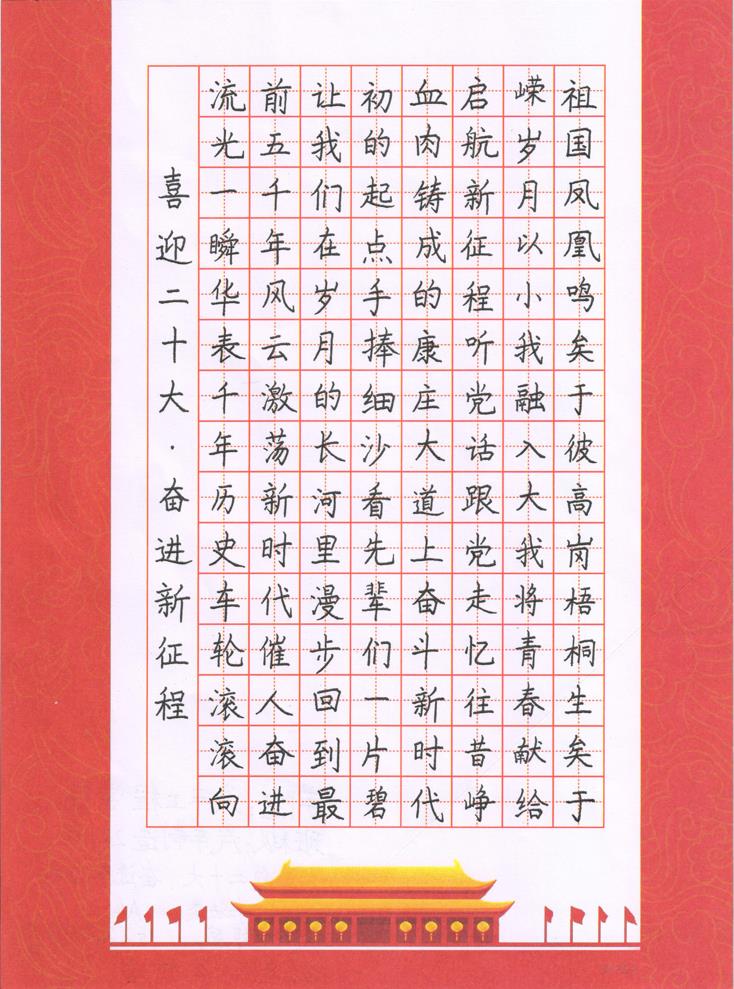 喜迎二十大·奋进新征程
流光一瞬华表千年历史车轮滚滚向
前五千年风云激荡新时代催人奋进
让我们在岁月的长河里漫步回到最
初的起点手捧细沙看先辈们一片碧
血肉铸成的康庄大道上奋斗新时代
启航新征程听党话跟党走忆往昔峥
嵘岁月以小我融入大我将青春献给
祖国凤凰鸣矣于彼高岗梧桐生矣于